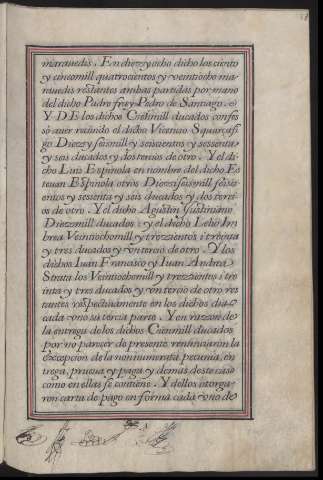 marauedis. En diezyocho dicho los ciento
y cincomill quatrocientos y veintiocho ma-
rauedis restantes ambas partidas por mano
del dicho Padre frey Pedro de Santiago. ~
Y DE los dichos Cienmill ducados confes
só auer reciuido el dicho Vicencio Squarçafi
go Diezy seismill y seiscientos y sessenta
y seis ducados y dos tercios de otro. Y el di-
cho Luis Espinola en nombre del dicho Es
teuan Espinola otros Diezyseismill seisci-
entos y sesenta y seis ducados y dos terci-
os de otro. Y el dicho Agustin Justiniano
Diezmill ducados: y el dicho Lelio Im
brea Veintiochomill y trezcientos i treinta
y tres ducados y vn tercio de otro. Y los
dichos Iuan Francisco y Iuan Andrea
Strata los Veintiochomill y trezzientos i tre
inta y tres ducados y vn tercio de otro res
tantes respectiuamente en los dichos dia
cada vno su tercia parte. Y en razon de
la entrega de los dichos Cienmill ducados
por no pareçer de presente renunciaron la
excepcion de la non numerata pecunia, en
trega, prueua y paga y demas deste caso
como en ellas se contiene. Y dellos otorga-
ron carta de pago en forma cada vno de